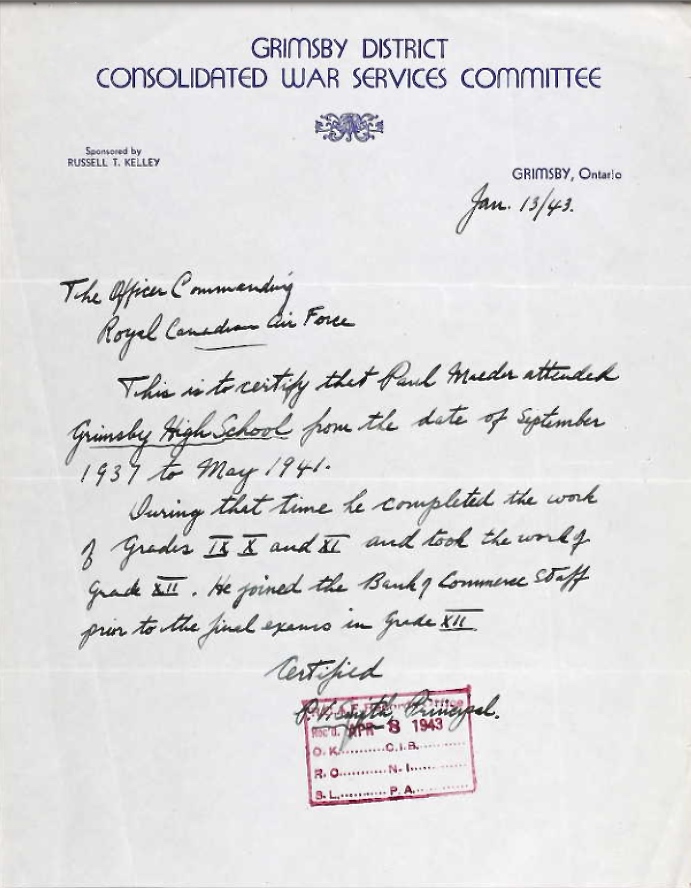 GRIMSBY DISTRICT
CONSOLIDATED WAR SERVICES COMMITTEE
Sponsored by
RUSSELL T. KELLEY
GRIMSBY, Ontario
Jan. 13/43.
The Officer Commanding
Royal Canadian Air Force
This is to certify that Paul Maeder attended
Grimsby High School from the date of September
1937 to May 1941.
During that time he completed the work
of Grades IX X and XI and took the work of
Grade XII. He joined the Bank of Commerce Staff
prior to the final exams in Grade XII
Certified
Smith, Principal.
Rec'd. APR - 8 1943
O.K. C.I.B.
R.O. N.I.
S.L. P.A.